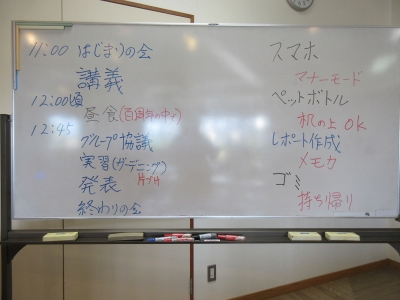 11:00 はじまりの会
講義
12:00頃
昼食
12:45
グループ協議
実習(ガーデニング)
発表
終わりの会
スマホ
マナーモード
ペットボトル
机の上 OK
レポート作成
メモカ
ゴミ
持ち帰り